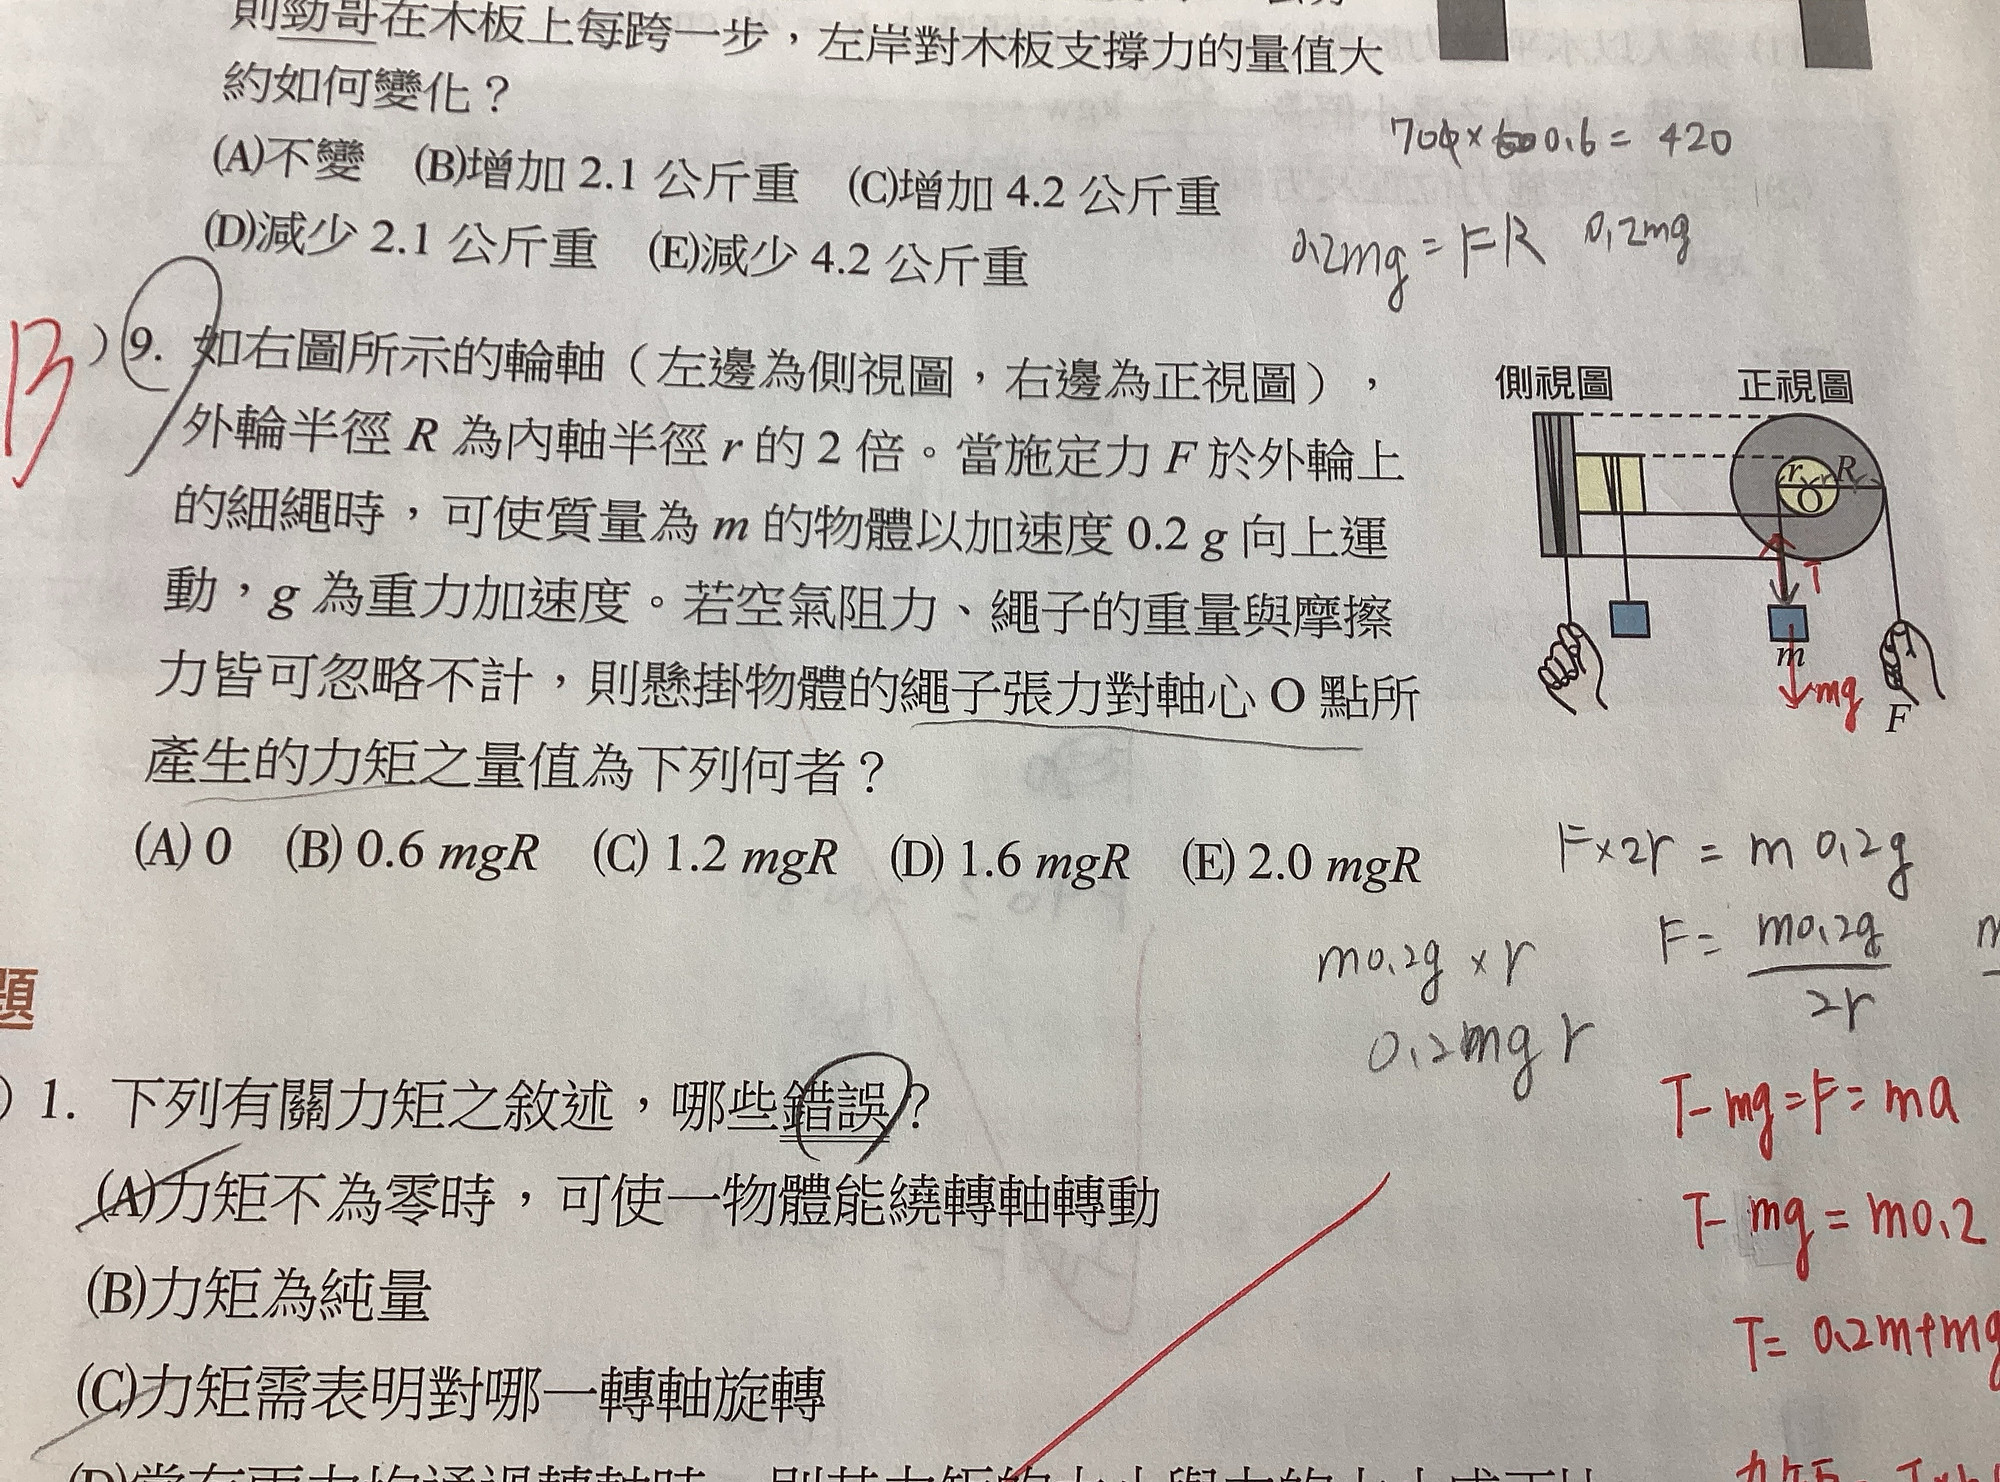 則勁哥在木板上每跨一步，左岸對木板支撐力的量值大
約如何變化？
(A)不變 (B)增加 2.1 公斤重 (C)增加 4.2 公斤重
(D)減少 2.1 公斤重 (E)減少 4.2 公斤重
700×0.6 = 420
0.2mg = FR 0.2mg
B
)9. 如右圖所示的輪軸（左邊為側視圖，右邊為正視圖），
外輪半徑 R 為內軸半徑 r 的 2 倍。當施定力 F 於外輪上
的細繩時，可使質量為 m 的物體以加速度 0.2 g 向上運
動，g 為重力加速度。若空氣阻力、繩子的重量與摩擦
力皆可忽略不計，則懸掛物體的繩子張力對軸心 O 點所
產生的力矩之量值為下列何者？
(A) 0 (B) 0.6 mgR (C) 1.2 mgR (D) 1.6 mgR (E) 2.0 mgR
側視圖 正視圖
r r R
O
T
m
mg
F
F×2r = m 0.2g
F= m0.2g
2r
m0.2g × r
0.2mg r
T-mg=F=ma
T- mg = m0.2
T= 0.2m+mg
題
) 1. 下列有關力矩之敘述，哪些錯誤？
(A)力矩不為零時，可使一物體能繞轉軸轉動
(B)力矩為純量
(C)力矩需表明對哪一轉軸旋轉